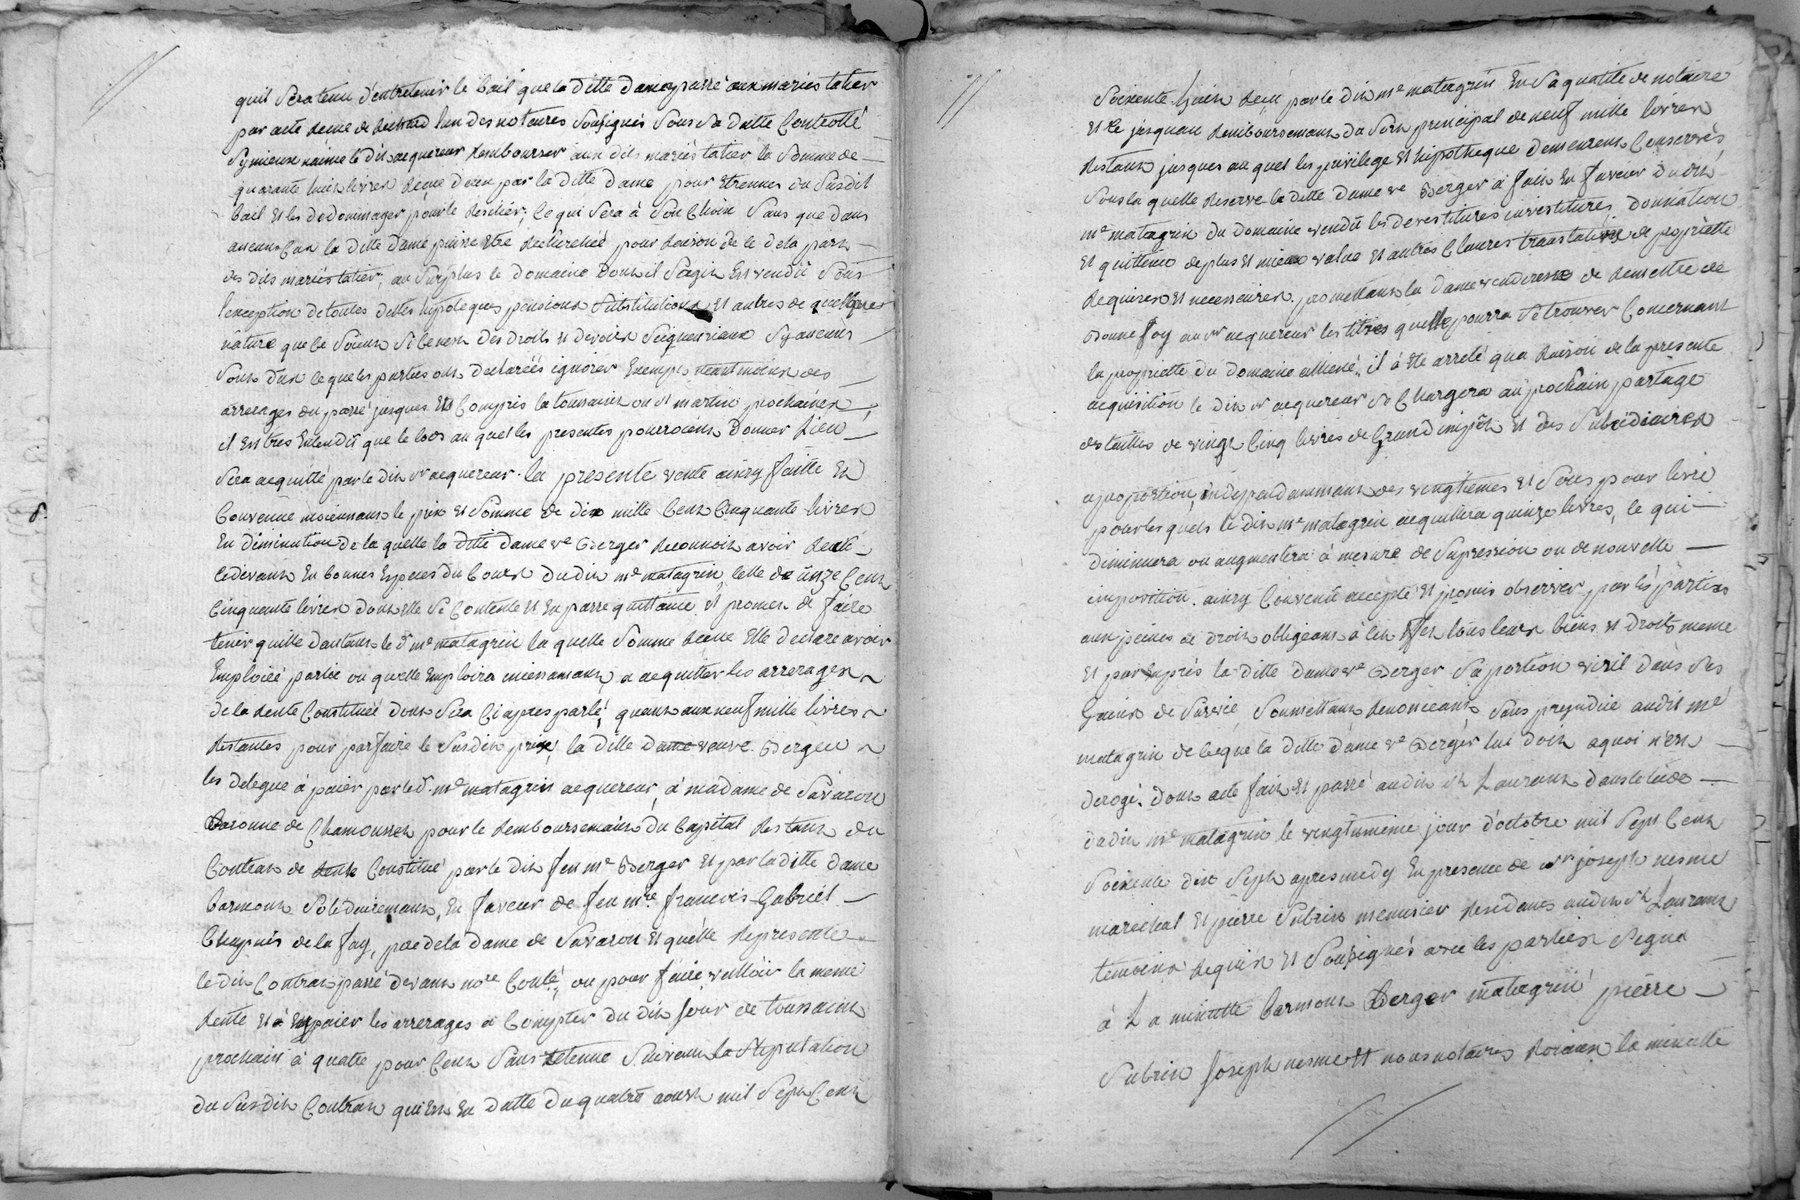 quil Sera tenu d'entretenir le bail que la ditte dame a passé aux mariés tatier
par acte Reçu de Richard l'un des notaires Soussignés Sous Sa datte Controllé
Sy mieux n'aime le dit acquereur Rembourser aux dits mariés tatier la Somme de
quarante huit livres Recue d'eux par la ditte dame pour Etrennes du Susdit
bail et les dedommager pour le Resilier, ce qui Sera à Son Choix Sans que dans
aucun Cas la ditte dame puisse etre Recherchée pour Raison de ce de la part
des dits mariés tatier, au Surplus le domaine dont il Sagit Est vendû Sous
l'exception de toutes dettes hipoteques pensions Substitutions et autres de quelque
nature que ce Soient Si ce nest des Droits et devoirs Seigneuriaux Sy aucuns
Sont dus ce que les parties ont declarées ignorer Exempt neantmoins des
arrerages du passé jusques Et Compris la toussaint ou st martin prochaines
il est tres Entendû que le lods au quel les presentes pourroient Donner Lieu
Sera acquitté par le dit sr acquereur. la presente vente ainsy faitte Et
Convenue moiennant le prix et Somme de dix mille Cent Cinquante livres
En diminution de la quelle la ditte dame ve Berger Reconnoit avoir Recû
cidevant En bonnes Especes du Cours dudit me matagrin celle de onze Cent
Cinquante livres dont elle Se Contente et En passe quittance et promet de faire
tenir quitte d'autant le d. me matagrin la quelle Somme Recue Elle declare avoir
Emploiéé partie ou quelle Emploira incessament a acquitter les arrerages
de la Rente Constituéé dont Sera Ci apres parlé, quant aux neuf mille livres
Restantes pour parfaire le Susdit prix, la ditte dame veuve Berger
les delegue à paier par led. me matagrin acquereur, à madame de Savaron
Baronne de Chamousset pour le Remboursement du Capital Restant du
Contrat de Rente Constitué par le dit feu me Berger et par la ditte dame
Carmont Solidairement, En faveur de feu mre francois Gabriel
Chapuis de la fay, pere de la dame de Savaron et quelle Represente
le dit Contrat passé devant nore Conté, ou pour faire valloir la meme
Rente et à En paier les arrerages a Compter du dit jour de toussaint
prochain à quatre pour Cent Sans retenue Suivant La Stipulation
du Susdit Contrat qui Est En datte du quatre aoust mil Sept Cent
Soixante huit Recu par le dit me matagrin En Sa qualité de notaire
et ce jusquau Remboursement du Sort principal de neuf mille livres
Restant jusques au quel les privilege et hipotheque demeurent Conservés
Sous la quelle Reserve la ditte dame ve Berger a fait En faveur dudit
me matagrin du domaine vendû les devestitures investitures Donnation
et quittence de plus et mieux value et autres Clauses translatives de propriette
Requises et necessaires. promettant la dame venderesse de Remettre de
Bonne foy au sr acquereur les titres quelle pourra Se trouver Concernant
la propriette du domaine aliené. il à été arreté qua Raison de la presente
acquisition le dit sr acquereur Se Chargera au prochain partage
des tailles de vingt Cinq livres de Grand impôt et des Subsidiaires
a proportion, independamment des vingtiemes et Sous pour livre
pour les quels le dit me matagrin acquittera quinze livres, ce qui
diminuera ou augmentera à mesure de Supression ou de nouvelle
imposition. ainsy Convenû accepté et promis observer par les parties
aux peines de droit obligeant à cet effet tous leurs biens et droits meme
et par Exprès la ditte dame ve Berger Sa portion viril dans Ses
Gains de Survie, Soumettant Renonceant, Sans prejudice audit me
matagrin de ce que la ditte dame ve Berger lui doit aquoi n'est
derogé. Dont acte fait et passé audit st Laurent dans l'etude
dudit me matagrin le vingtunieme jour d'octobre mil Sept Cent
Soixante dix Sept apres medy En presence de sr joseph nesme
marechal et pierre Subrin menusier Residants audit st Laurent
temoins Requis et Soussignés avec les parties Signé
à La minutte Carmont Berger matagrin pierre
Subrin joseph nesme et nous notaires Roiaux la minutte